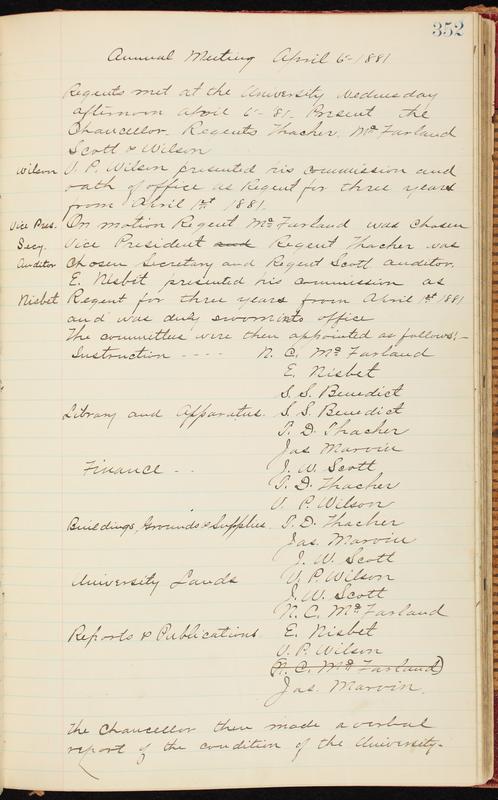 352
Annual Meeting April 6- 1881
Regents met at the University Wednesday
afternoon April 6- 81. Present the
Chancellor. Regents Thacher, McFarland
Scott & Wilson
Wilson V. P. Wilson presented his commission and
oath of office as Regent for three years
from April 1st 1881.
Vice Pres. On motion Regent McFarland was chosen
Secy. Vice President and Regent Thacher was
Auditor chosen Secretary and Regent Scott auditor.
E. Nisbet presented his commission as
Nisbet Regent for three years from April 1st 1881
and was duly sworn into office
The committees were then appointed as follows:-
Instruction - - - - N. C. McFarland
E. Nisbet
S. S. Benedict
Library and Apparatus. S. S. Benedict
T. D. Thacher
Jas. Marvin
Finance - - J. W. Scott
T. D. Thacher
V. P. Wilson
Buildings, Grounds & Supplies. T. D. Thacher
Jas. Marvin
J. W. Scott
University Lands V. P. Wilson
J. W. Scott
N. C. McFarland
Reports & Publications E. Nisbet
V. P. Wilson
(N. C. McFarland)
Jas. Marvin.
The Chancellor then made a verbal
report of the condition of the University.